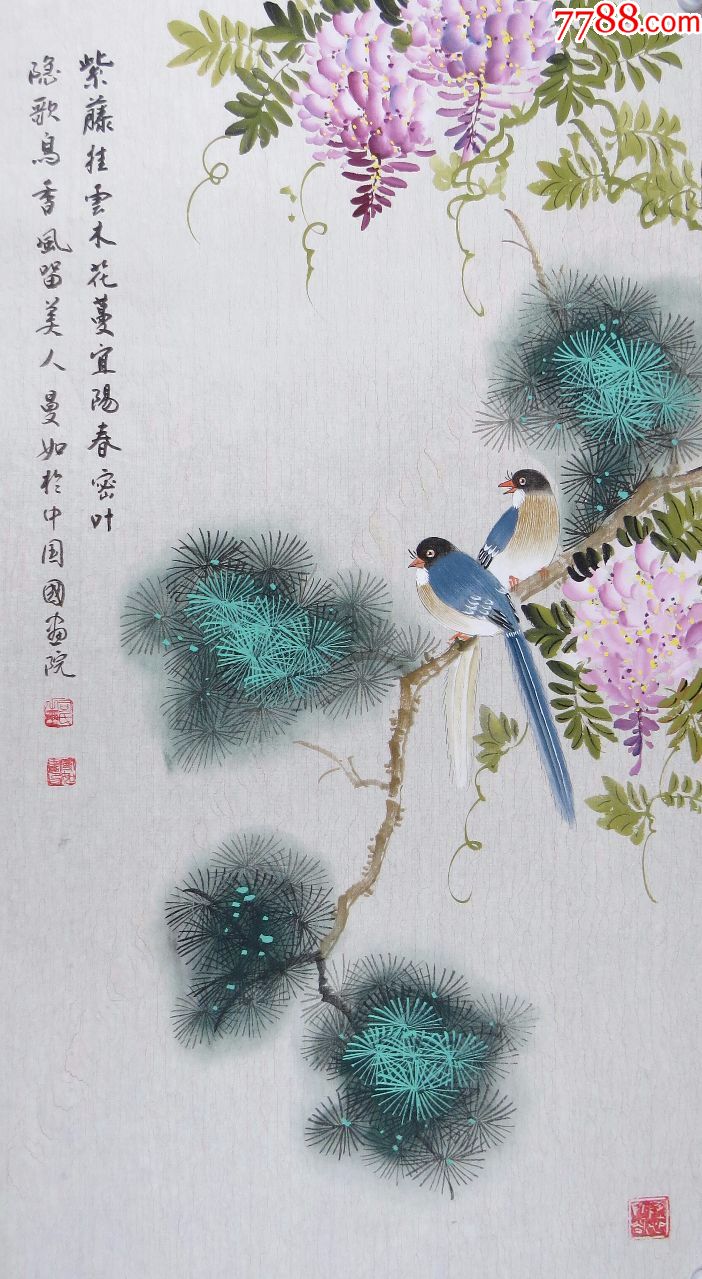 7788.com
紫藤挂雲木花蔓宜陽春密叶
隐歌鳥香風留美人曼如於中国國画院